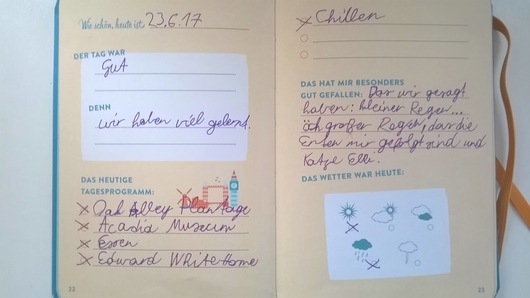 Wie schön, heute ist 23.6.17
DER TAG WAR
Gut
DENN
wir haben viel gelernt.
DAS HEUTIGE
TAGESPROGRAMM:
x Oak Alley Plantage
x Acadia Museum
x Essen
x Edward White Home
22
x Chillen
DAS HAT MIR BESONDERS
GUT GEFALLEN: Das wir gesagt
haben: kleiner Regen...
och großer Regen, das die
Enten mir gefolgt sind und
Katze Elli!
DAS WETTER WAR HEUTE:
23